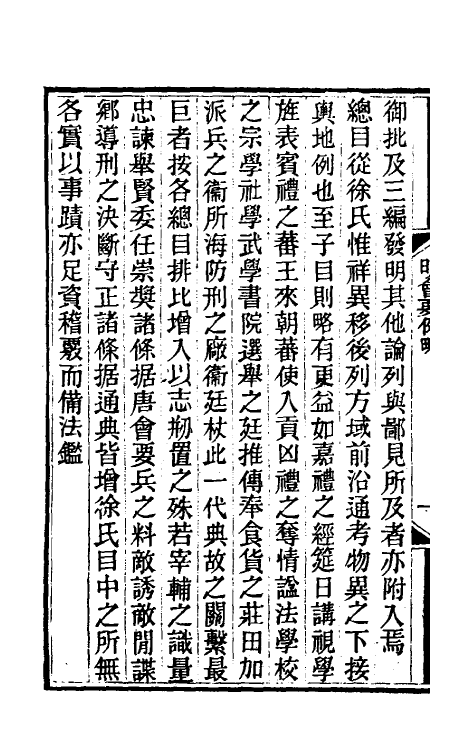 御批及三編發明其他論列與鄙見所及者亦附入焉
總目從徐氏惟祥異移後列方域前沿通考物異之下接
輿地例也至子目則略有更益如嘉禮之經筵日講視學
旌表賓禮之蕃王來朝蕃使入貢凶禮之奪情諡法學校
之宗學社學武學書院選舉之廷推傳奉食貨之莊田加
派兵之衞所海防刑之厰衞廷杖此一代典故之關繫最
巨者按各總目排比增入以志剏置之殊若宰輔之識量
忠諫舉賢委任崇奬諸條据唐會要兵之料敵誘敵閒諜
鄉導刑之決斷守正諸條据通典皆增徐氏目中之所無
各實以事蹟亦足資稽覈而備法鑑
明會要例略
一